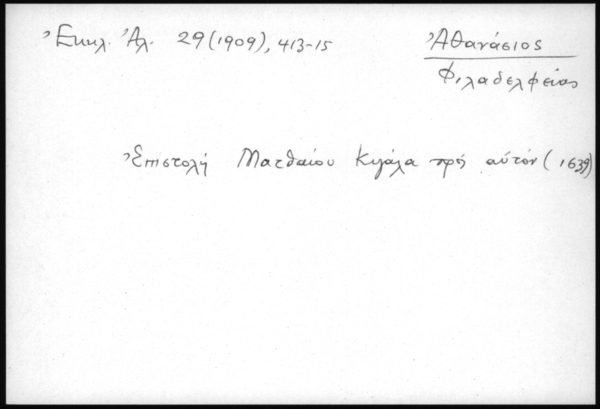 Ἐκκλ. Ἀλ. 29 (1909), 413-15
Ἀθανάσιος
Φιλαδελφείας
Ἐπιστολή Ματθαίου Κιγάλα πρός αὐτόν (1639)